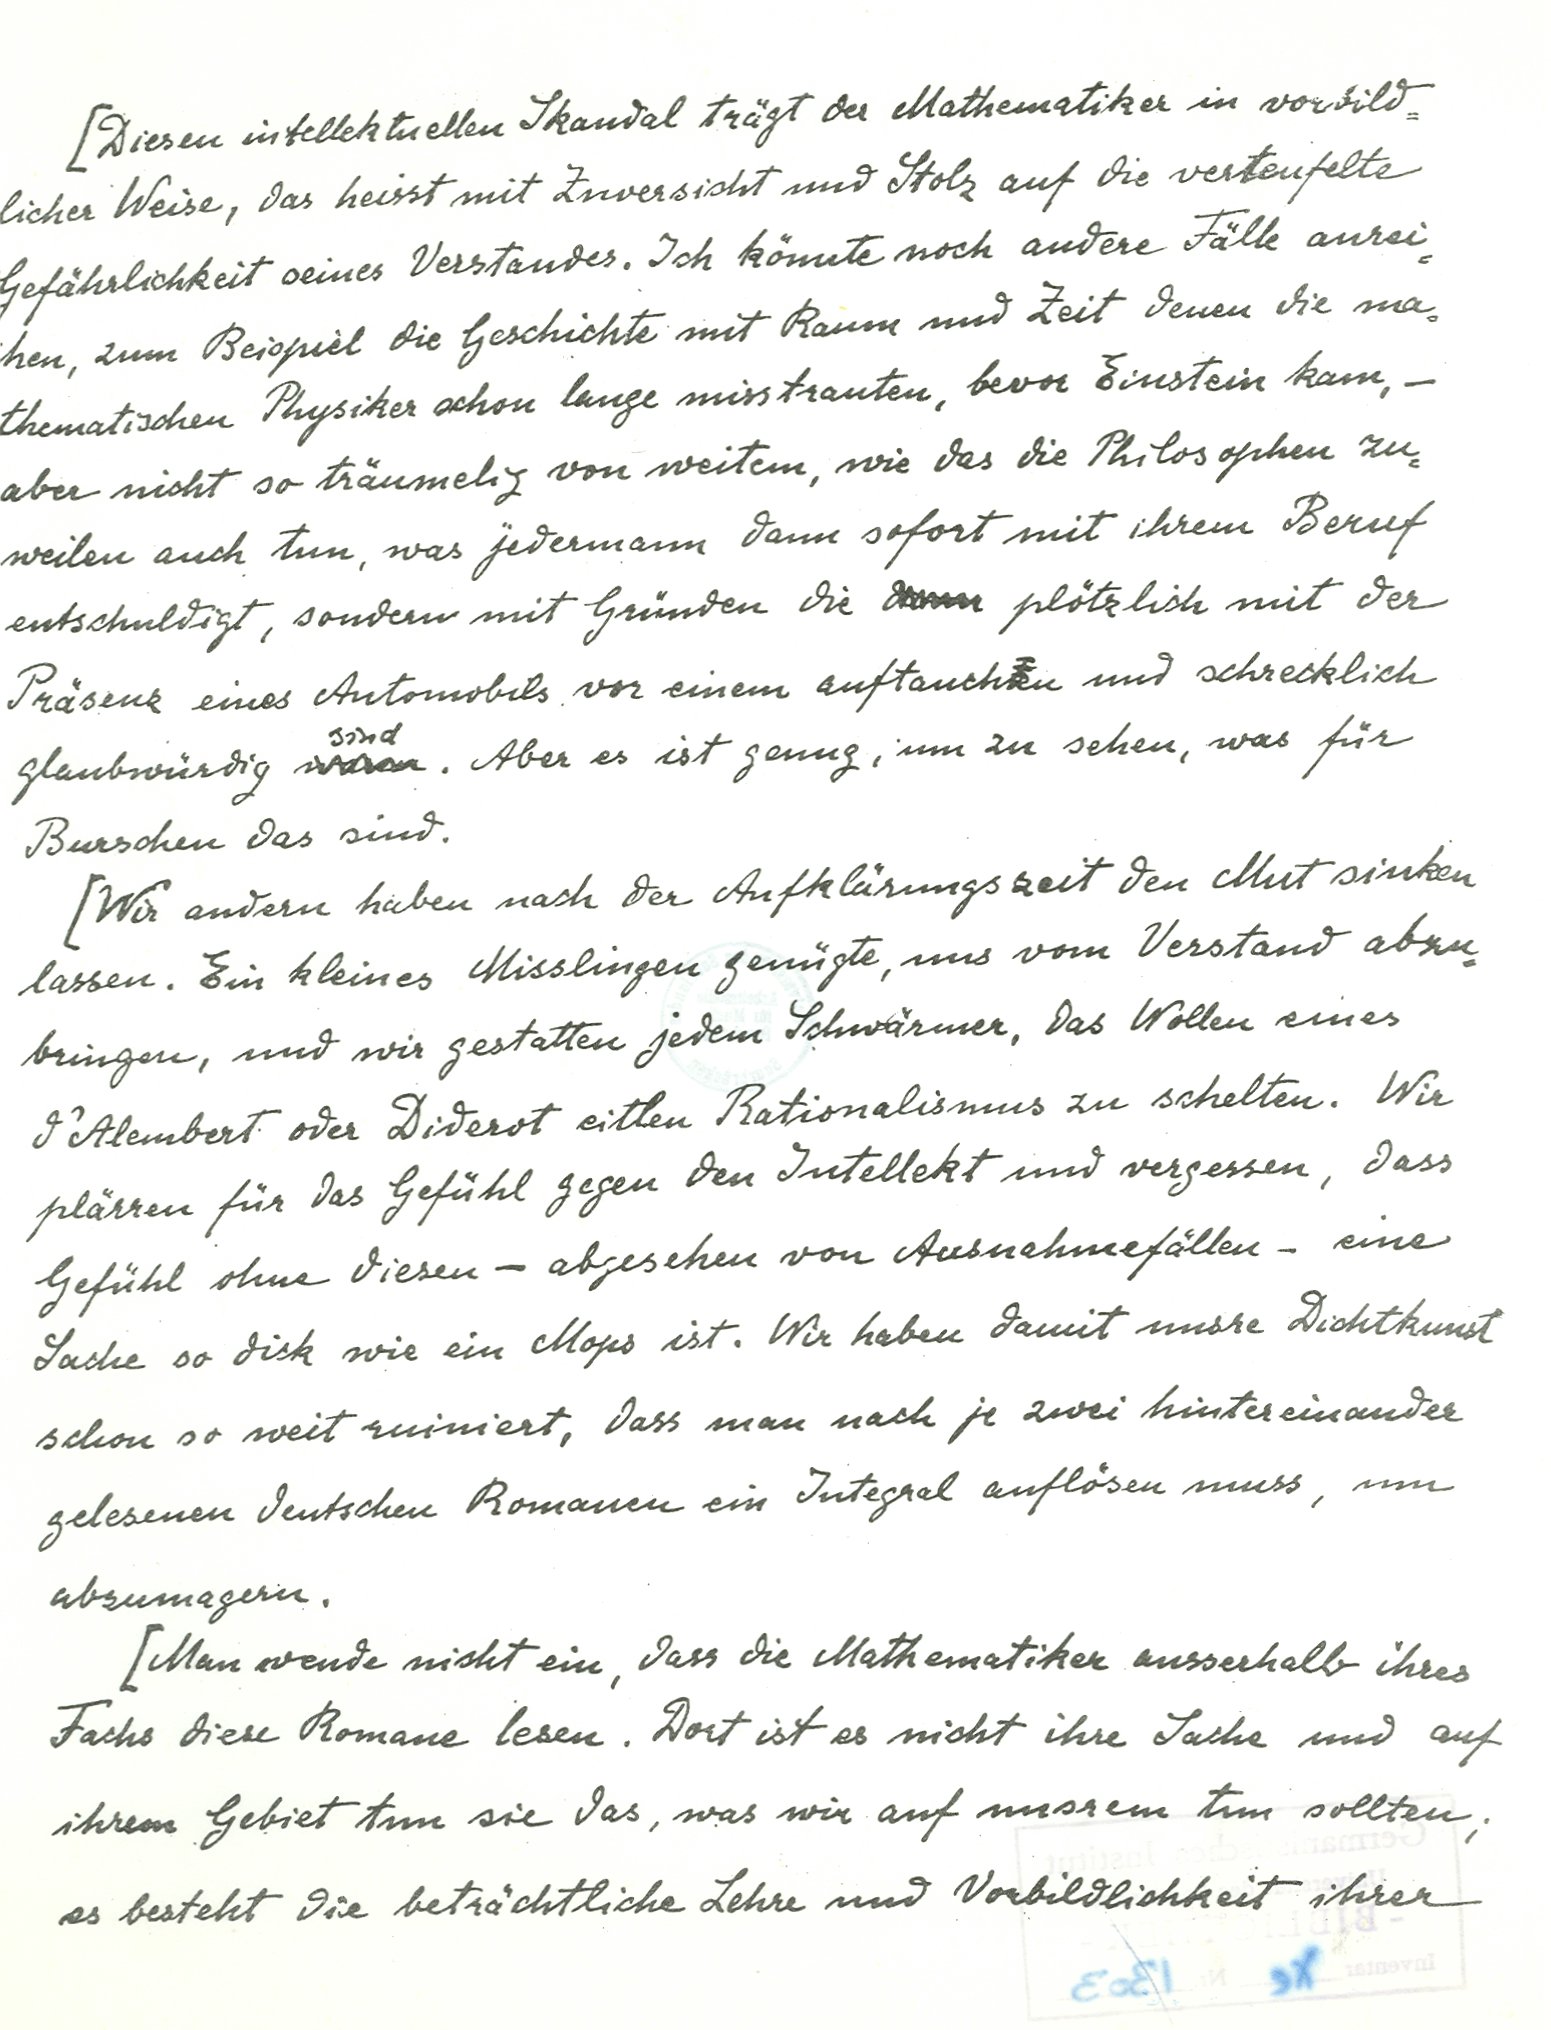 [Diesen intellektuellen Skandal trägt der Mathematiker in vorbild=
licher Weise, das heisst mit Zuversicht und Stolz auf die verteufelte
Gefährlichkeit seines Verstandes. Ich könnte noch andere Fälle anrei=
hen, zum Beispiel die Geschichte mit Raum und Zeit denen die ma=
thematischen Physiker schon lange misstrauten, bevor Einstein kam, –
aber nicht so träumelig von weitem, wie das die Philosophen zu=
weilen auch tun, was jedermann dann sofort mit ihrem Beruf
entschuldigt, sondern mit Gründen die plötzlich mit der
Präsenz eines Automobils vor einem auftauchen und schrecklich
glaubwürdig sind. Aber es ist genug, um zu sehen, was für
Burschen das sind.
[Wir andern haben nach der Aufklärungszeit den Mut sinken
lassen. Ein kleines Misslingen genügte, uns vom Verstand abzu=
bringen, und wir gestatten jedem Schwärmer, das Wollen eines
d'Alembert oder Diderot eitlen Rationalismus zu schelten. Wir
plärren für das Gefühl gegen den Intellekt und vergessen, dass
Gefühl ohne diesen – abgesehen von Ausnahmefällen – eine
Sache so dick wie ein Mops ist. Wir haben damit unsre Dichtkunst
schon so weit ruiniert, dass man nach je zwei hintereinander
gelesenen deutschen Romanen ein Integral auflösen muss, um
abzumagern.
[Man wende nicht ein, dass die Mathematiker ausserhalb ihres
Fachs diese Romane lesen. Dort ist es nicht ihre Sache und auf
ihrem Gebiet tun sie das, was wir auf unsrem tun sollten;
es besteht die beträchtliche Lehre und Vorbildlichkeit ihrer
Germanisches Institut
Inventar Xe Nr. 1303